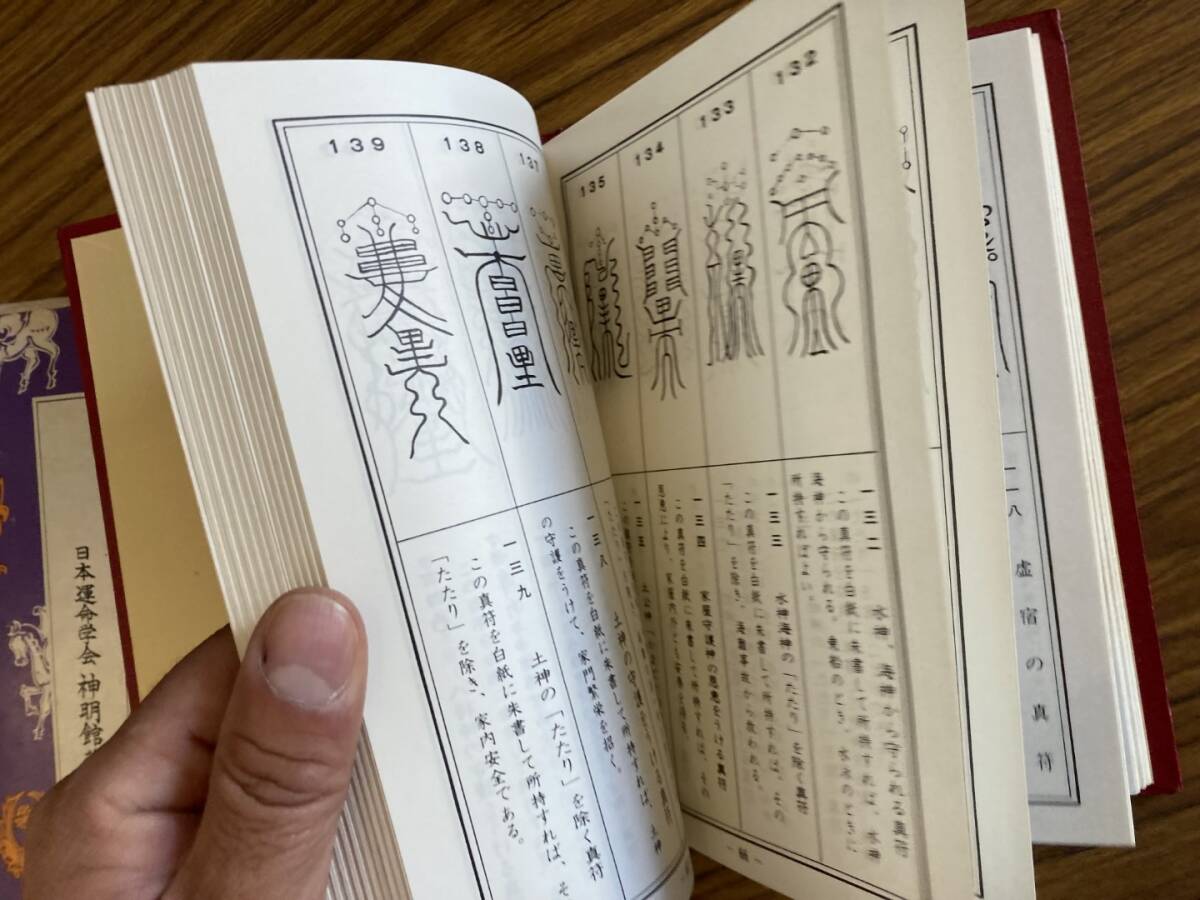 132
133
134
135
137
138
139
一三二　水神、海神から守られる真符
この真符を白紙に朱書して所持すれば、水神
海神から守られる。乗船のとき、水泳のときに
所持すればよい。
一三三　水神海神の「たたり」を除く真符
この真符を白紙に朱書して所持すれば、その
「たたり」を除き、海難事故から救われる。
一三四　家屋守護神の恩恵をうける真符
この真符を白紙に朱書して所持すれば、その
恩恵により、家屋内外とも安泰を得る。
一三五
一三八　土神の守護をうける真符
この真符を白紙に朱書して所持すれば、土神
の守護をうけて、家門繁栄を招く。
一三九　土神の「たたり」を除く真符
この真符を白紙に朱書して所持すれば、そ
「たたり」を除き、家内安全である。
二八　虚宿の真符
日本運命学会　神明館